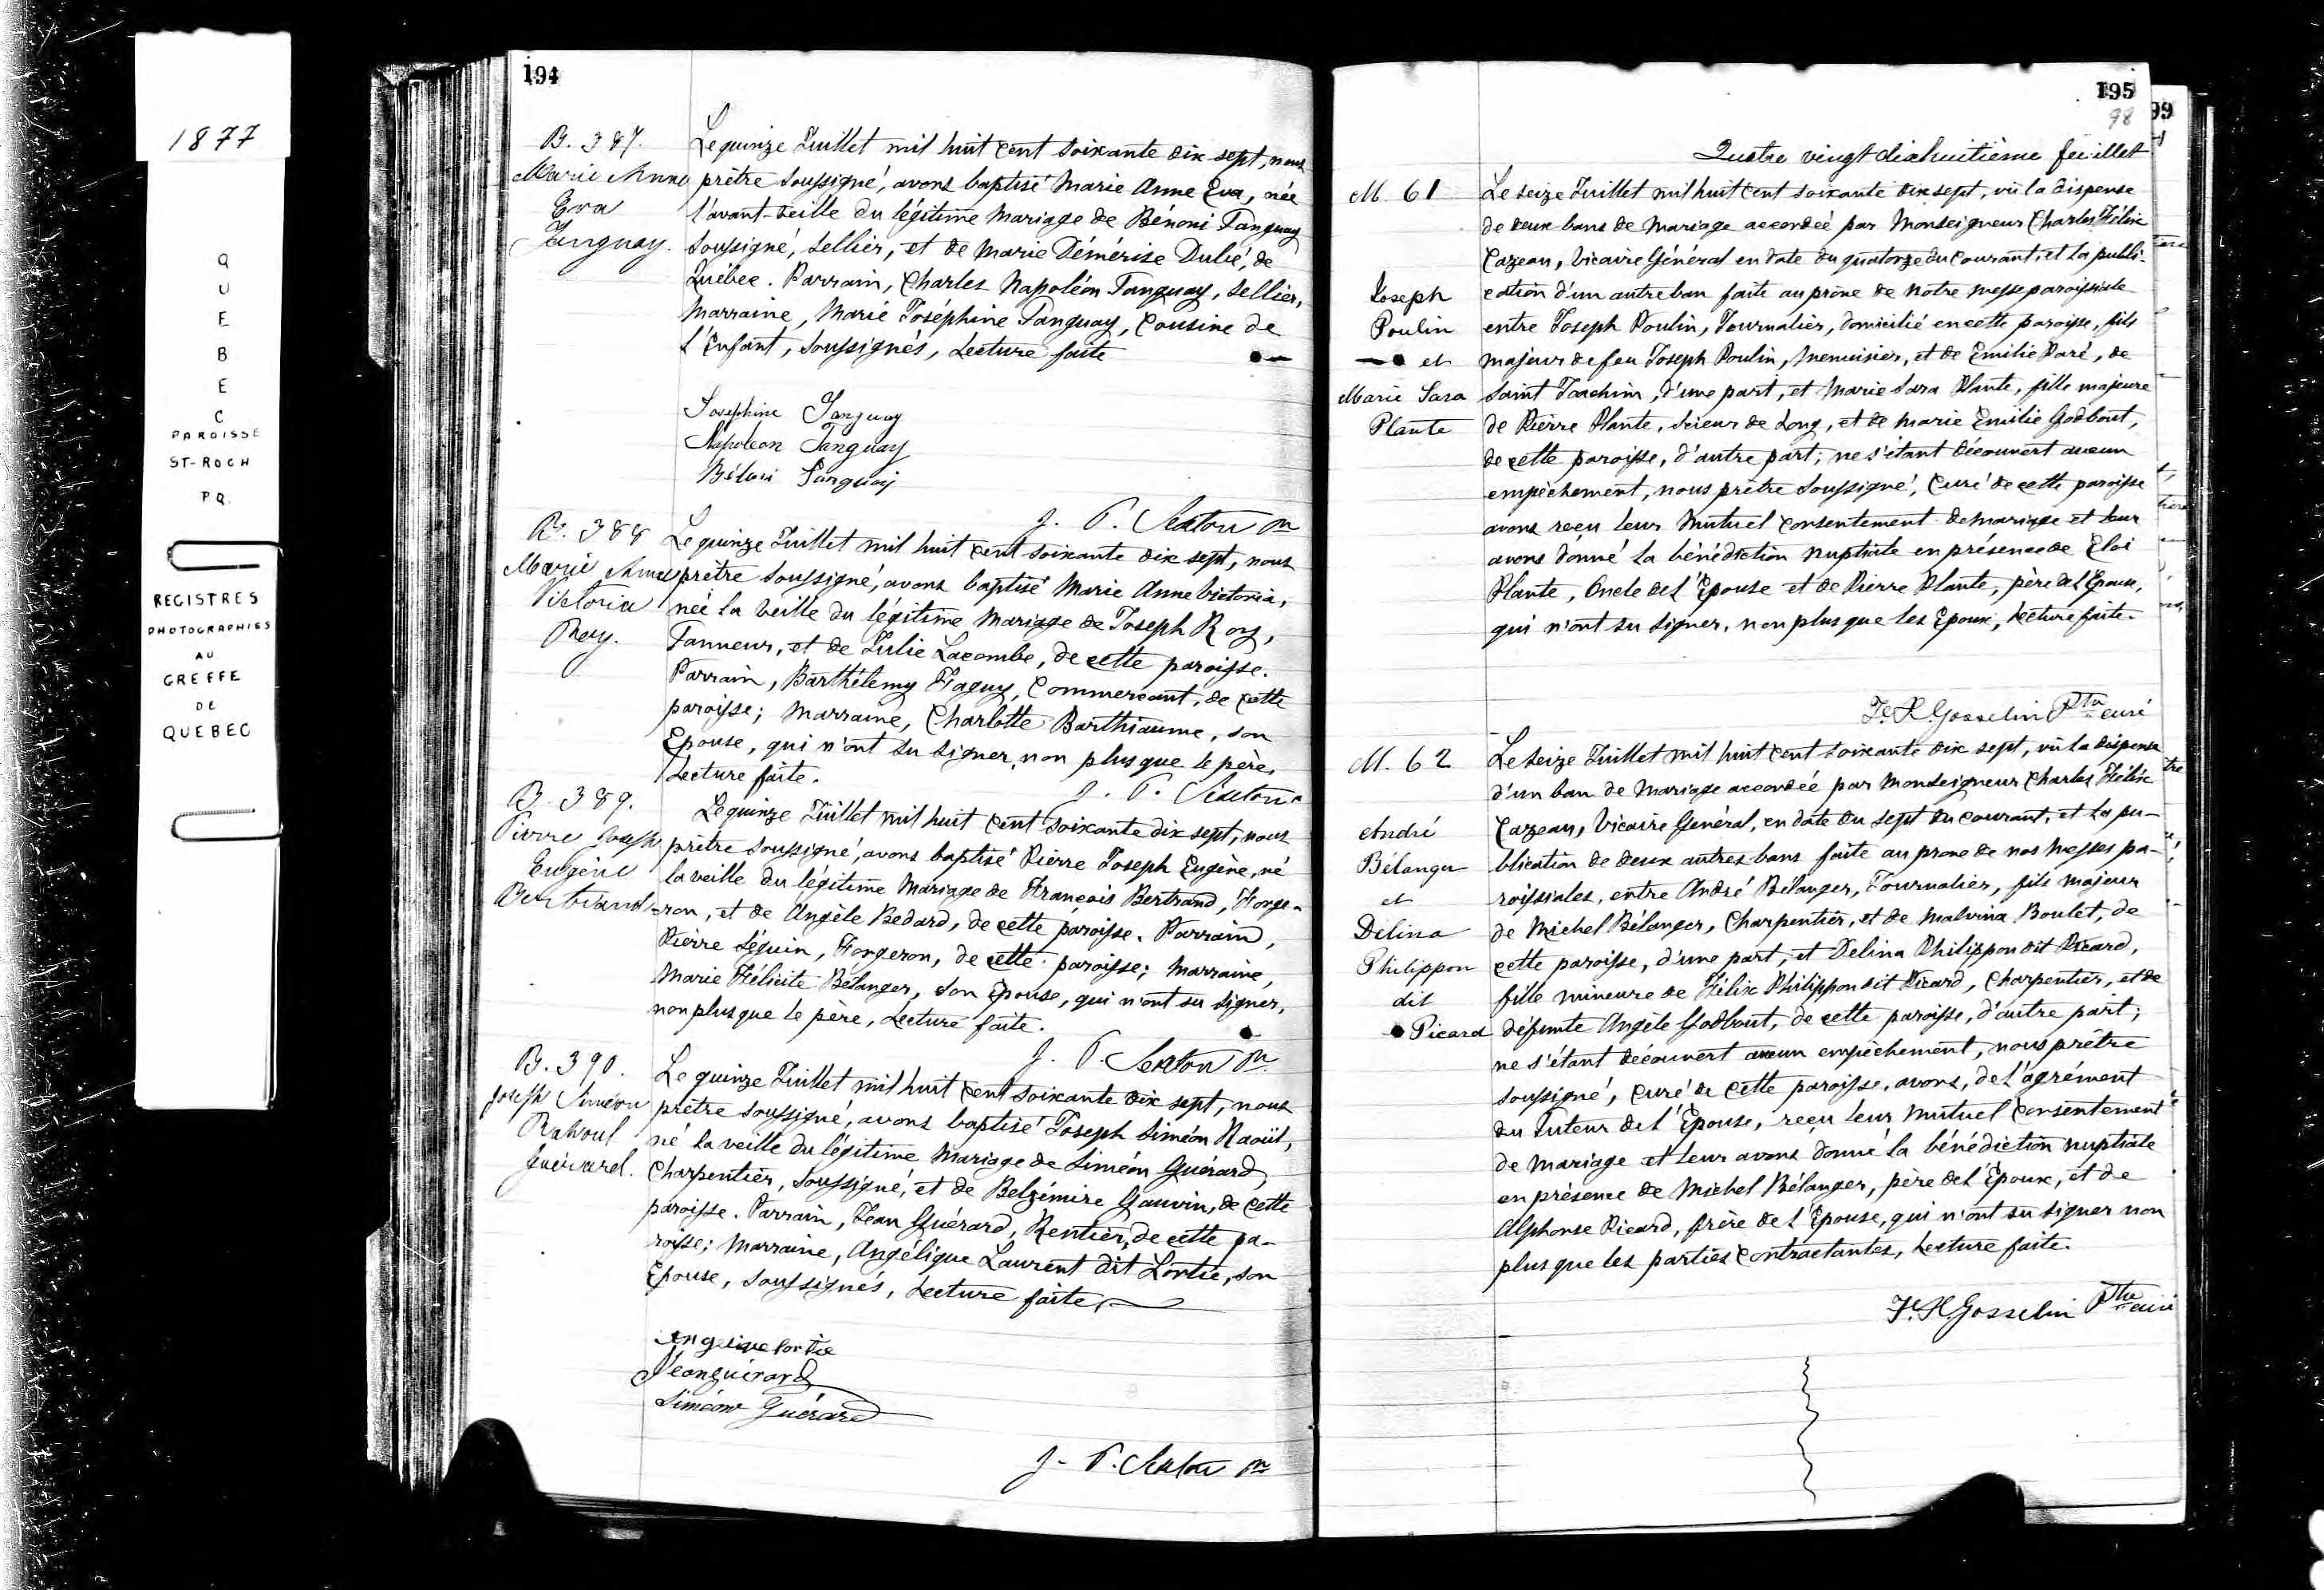 1877
QUEBEC
PAROISSE
ST-ROCH
PQ.
REGISTRES
PHOTOGRAPHIES
AU
GREFFE
DE
QUEBEC
194
B. 387.
Marie Anne
Eva
Tanguay.
Le quinze Juillet mil huit cent soixante dix sept, nous
prêtre soussigné, avons baptisé Marie Anne Eva, née
l'avant-veille du légitime mariage de Bénoni Tanguay
soussigné, Sellier, et de Marie Démérise Dubé, de
Québec. Parrain, Charles Napoléon Tanguay, Sellier,
Marraine, Marie Joséphine Tanguay, Cousine de
l'Enfant, soussignés, Lecture faite
Josephine Tanguay
Napoleon Tanguay
Tanguay
J. P. Sexton Ptr
B. 388
Marie Anne
Victoria
Roy.
Le quinze Juillet mil huit cent soixante dix sept, nous
prêtre soussigné, avons baptisé Marie Anne Victoria,
née la veille du légitime mariage de Joseph Roy,
Tanneur, et de Julie Lacombe, de cette paroisse.
Parrain, Barthélemy Faguy, Commerçant, de cette
paroisse; Marraine, Charlotte Barthiaume, son
Epouse, qui n'ont su signer, non plus que le père,
Lecture faite.
J. P. Sexton
B. 389.
Pierre Joseph
Eugène
Bertrand
Le quinze Juillet mil huit cent soixante dix sept, nous
prêtre soussigné, avons baptisé Pierre Joseph Eugène, né
la veille du légitime mariage de François Bertrand, Forge-
ron, et de Angèle Bedard, de cette paroisse. Parrain,
Pierre Séguin, Forgeron, de cette paroisse; Marraine,
Marie Félicité Bélanger, son Epouse, qui n'ont su signer,
non plus que le père, Lecture faite.
J. P. Sexton Ptr
B. 390.
Joseph Siméon
Rahoul
Guérard.
Le quinze Juillet mil huit cent soixante dix sept, nous
prêtre soussigné, avons baptisé Joseph Siméon Raoül,
né la veille du légitime mariage de Siméon Guérard,
Charpentier, soussigné, et de Belzémire Gauvin, de cette
paroisse. Parrain, Jean Guérard, Rentier, de cette pa-
roisse; Marraine, Angélique Laurent dit Lortie, son
Epouse, soussignés, Lecture faite,
Angelique Lortie
Jean guérard
Siméon Guérard
J. P. Sexton Ptr
195
98
99
Quatre vingt dixhuitième feuillet
M. 61
Joseph
Poulin
et
Marie Sara
Plante
Le seize Juillet mil huit cent soixante dix sept, vû la dispense
de deux bans de mariage accordée par Monseigneur Charles Félix
Cazeau, Vicaire Général en date du quatorze du courant, et la publi-
cation d'un autre ban faite au prône de notre messe paroissiale
entre Joseph Poulin, Journalier, domicilié en cette paroisse, fils
majeur de feu Joseph Poulin, Menuisier, et de Emilie Paré, de
Saint Joachim, d'une part, et Marie Sara Plante, fille majeure
de Pierre Plante, Scieur de Long, et de Marie Emilie Godbout,
de cette paroisse, d'autre part; ne s'étant découvert aucun
empêchement, nous prêtre soussigné, Curé de cette paroisse
avons reçu leur mutuel consentement de mariage et leur
avons donné la bénédiction nuptiale en présence de Eloi
Plante, Oncle de l'Epouse et de Pierre Plante, père de l'Epouse,
qui n'ont su signer, non plus que les Epoux, Lecture faite.
F. H. Gosselin Ptre curé
M. 62
André
Bélanger
et
Délina
Philippon
dit
Picard
Le seize Juillet mil huit cent soixante dix sept, vû la dispense
d'un ban de mariage accordée par Monseigneur Charles Félix
Cazeau, Vicaire Général, en date du sept du courant, et la pu-
blication de deux autres bans faite au prone de nos messes pa-
roissiales, entre André Bélanger, Journalier, fils majeur
de Michel Bélanger, Charpentier, et de Malvina Boulet, de
cette paroisse, d'une part, et Delina Philippon dit Picard,
fille mineure de Félix Philippon dit Picard, Charpentier, et de
défunte Angèle Godbout, de cette paroisse, d'autre part;
ne s'étant découvert aucun empêchement, nous prêtre
soussigné, Curé de cette paroisse, avons, de l'agrément
du Tuteur de l'Epouse, reçu leur mutuel consentement
de mariage et leur avons donné la bénédiction nuptiale
en présence de Michel Bélanger, père de l'Epoux, et de
Alphonse Picard, frère de l'Epouse, qui n'ont su signer non
plus que les parties contractantes, Lecture faite.
F. H. Gosselin Ptre curé